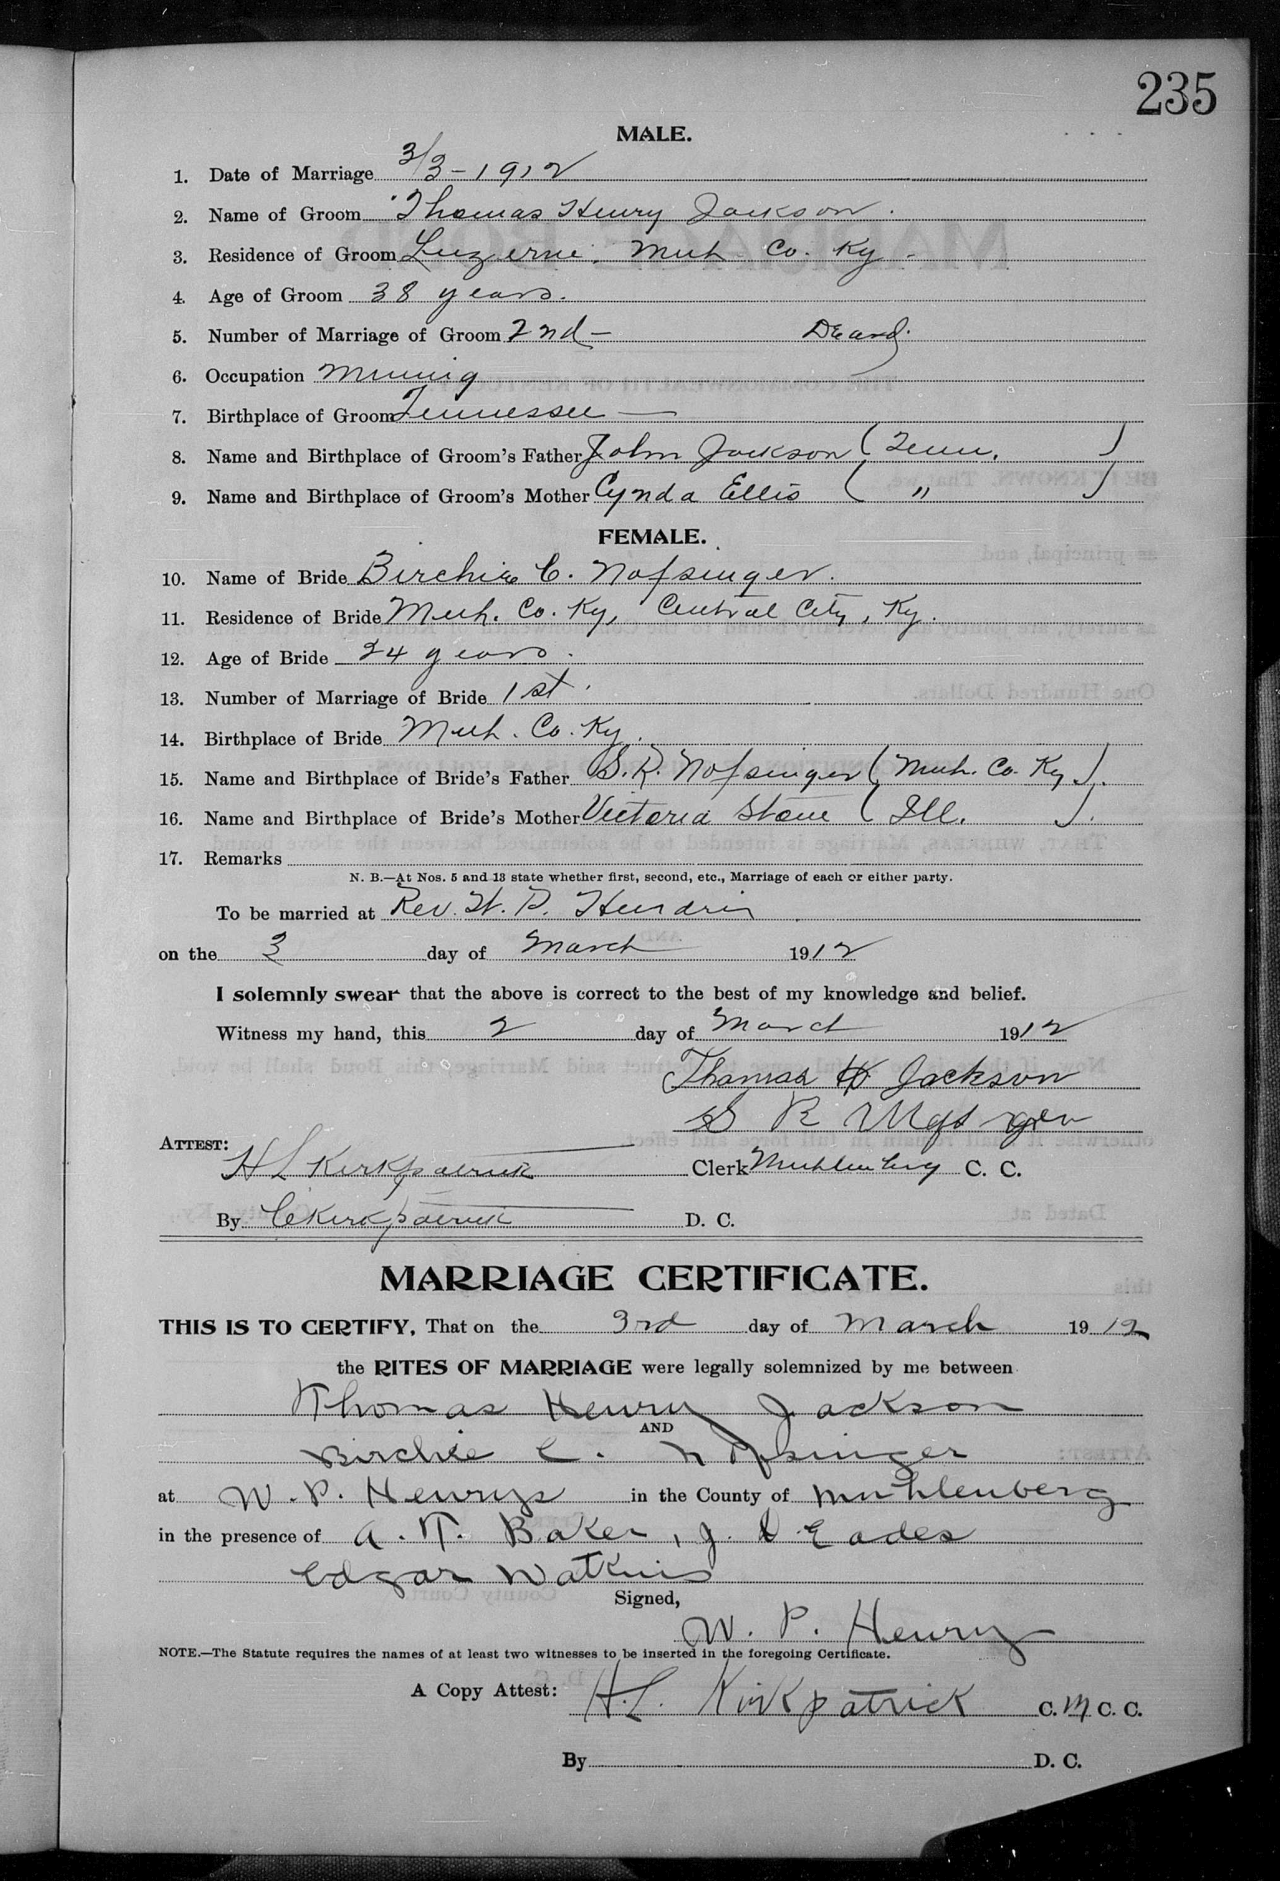 235
MALE.
1. Date of Marriage 3/3-1912
2. Name of Groom Thomas Henry Jackson.
3. Residence of Groom Luzerne, Muh Co. Ky.
4. Age of Groom 38 years.
5. Number of Marriage of Groom 2nd —
6. Occupation Mining
7. Birthplace of Groom Tennessee —
8. Name and Birthplace of Groom's Father John Jackson ( Tenn. )
9. Name and Birthplace of Groom's Mother Cynda Ellis ( " )
FEMALE.
10. Name of Bride Birchie C. Nofsinger.
11. Residence of Bride Muh. Co. Ky, Central City, Ky.
12. Age of Bride 24 years.
13. Number of Marriage of Bride 1st.
14. Birthplace of Bride Muh. Co. Ky.
15. Name and Birthplace of Bride's Father S. R. Nofsinger ( Muh. Co. Ky ).
16. Name and Birthplace of Bride's Mother Victoria ( Ill. ).
17. Remarks
N. B.—At Nos. 5 and 13 state whether first, second, etc., Marriage of each or either party.
To be married at Rev. W. P.
on the 3 day of March 1912
I solemnly swear that the above is correct to the best of my knowledge and belief.
Witness my hand, this 2 day of March 1912
Thomas H Jackson
S R
ATTEST:
H L Kirkpatrick Clerk Muhlenberg C. C.
By C Kirkpatrick D. C.
MARRIAGE CERTIFICATE.
THIS IS TO CERTIFY, That on the 3rd day of March 1912
the RITES OF MARRIAGE were legally solemnized by me between
Thomas Henry Jackson
AND
Birchie C. Nofsinger
at W. P. Henrys in the County of Muhlenberg
in the presence of A. T. Baker, J. Eades
Edgar Watkins
Signed,
W. P. Henry
NOTE.—The Statute requires the names of at least two witnesses to be inserted in the foregoing Certificate.
A Copy Attest: H. L. Kirkpatrick C. M C. C.
By D. C.